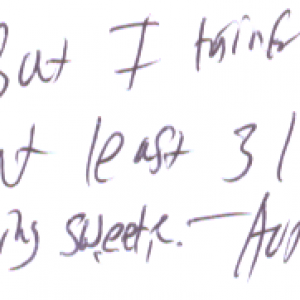 But I think
at least 31
ing sweetie. —Au